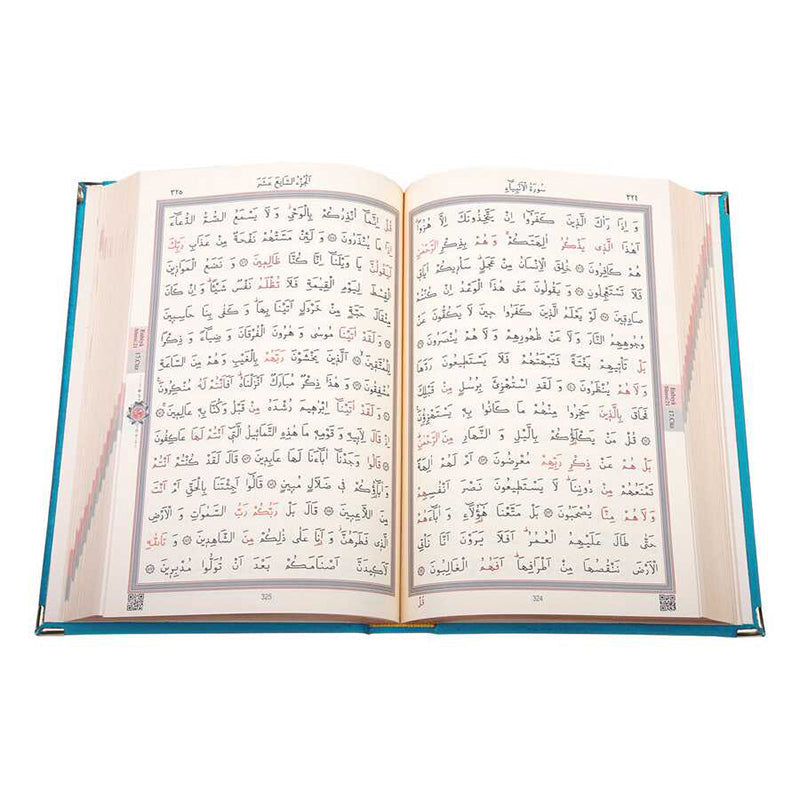 سُورَةُ الْاَنْبِيَاءِ ٣٢٤
وَ اِذَا رَاٰكَ الَّذ۪ينَ كَفَرُٓوا اِنْ يَتَّخِذُونَكَ اِلَّا هُزُوًاۜ
اَهٰذَا الَّذ۪ي يَذْكُرُ اٰلِهَتَكُمْۚ وَ هُمْ بِذِكْرِ الرَّحْمٰنِ
هُمْ كَافِرُونَ ۝ خُلِقَ الْاِنْسَانُ مِنْ عَجَلٍۜ سَاُر۪يكُمْ اٰيَات۪ي
فَلَا تَسْتَعْجِلُونِ ۝ وَ يَقُولُونَ مَتٰى هٰذَا الْوَعْدُ اِنْ كُنْتُمْ
صَادِق۪ينَ ۝ لَوْ يَعْلَمُ الَّذ۪ينَ كَفَرُوا ح۪ينَ لَا يَكُفُّونَ عَنْ
وُجُوهِهِمُ النَّارَ وَ لَا عَنْ ظُهُورِهِمْ وَ لَا هُمْ يُنْصَرُونَ ۝
بَلْ تَأْت۪يهِمْ بَغْتَةً فَتَبْهَتُهُمْ فَلَا يَسْتَط۪يعُونَ رَدَّهَا
وَ لَا هُمْ يُنْظَرُونَ ۝ وَ لَقَدِ اسْتُهْزِئَ بِرُسُلٍ مِنْ قَبْلِكَ
فَحَاقَ بِالَّذ۪ينَ سَخِرُوا مِنْهُمْ مَا كَانُوا بِه۪ يَسْتَهْزِؤُ۫نَ
۝ قُلْ مَنْ يَكْلَؤُ۬كُمْ بِالَّيْلِ وَ النَّهَارِ مِنَ الرَّحْمٰنِۜ
بَلْ هُمْ عَنْ ذِكْرِ رَبِّهِمْ مُعْرِضُونَ ۝ اَمْ لَهُمْ اٰلِهَةٌ
تَمْنَعُهُمْ مِنْ دُونِنَاۜ لَا يَسْتَط۪يعُونَ نَصْرَ اَنْفُسِهِمْ
وَ لَا هُمْ مِنَّا يُصْحَبُونَ ۝ بَلْ مَتَّعْنَا هٰٓؤُ۬لَٓاءِ وَ اٰبَٓاءَهُمْ
حَتّٰى طَالَ عَلَيْهِمُ الْعُمُرُۜ اَفَلَا يَرَوْنَ اَنَّا نَأْتِي
الْاَرْضَ نَنْقُصُهَا مِنْ اَطْرَافِهَاۜ اَفَهُمُ الْغَالِبُونَ ۝
324
قُلْ
اَلْجُزْءُ السَّابِعَ عَشَرَ ٣٢٥
قُلْ اِنَّمَٓا اُنْذِرُكُمْ بِالْوَحْيِۘ وَ لَا يَسْمَعُ الصُّمُّ الدُّعَٓاءَ
اِذَا مَا يُنْذَرُونَ ۝ وَ لَئِنْ مَسَّتْهُمْ نَفْحَةٌ مِنْ عَذَابِ رَبِّكَ
لَيَقُولُنَّ يَا وَيْلَنَٓا اِنَّا كُنَّا ظَالِم۪ينَ ۝ وَ نَضَعُ الْمَوَاز۪ينَ
الْقِسْطَ لِيَوْمِ الْقِيٰمَةِ فَلَا تُظْلَمُ نَفْسٌ شَيْـًٔاۜ وَ اِنْ كَانَ
مِثْقَالَ حَبَّةٍ مِنْ خَرْدَلٍ اَتَيْنَا بِهَاۜ وَ كَفٰى بِنَا حَاسِب۪ينَ
۝ وَ لَقَدْ اٰتَيْنَا مُوسٰى وَ هٰرُونَ الْفُرْقَانَ وَ ضِيَٓاءً وَ ذِكْرًا
لِلْمُتَّق۪ينَ ۝ اَلَّذ۪ينَ يَخْشَوْنَ رَبَّهُمْ بِالْغَيْبِ وَ هُمْ مِنَ السَّاعَةِ
مُشْفِقُونَ ۝ وَ هٰذَا ذِكْرٌ مُبَارَكٌ اَنْزَلْنَاهُۜ اَفَاَنْتُمْ لَهُ مُنْكِرُونَ ۝
وَ لَقَدْ اٰتَيْنَٓا اِبْرٰه۪يمَ رُشْدَهُ مِنْ قَبْلُ وَ كُنَّا بِه۪ عَالِم۪ينَ ۝
اِذْ قَالَ لِاَب۪يهِ وَ قَوْمِه۪ مَا هٰذِهِ التَّمَاث۪يلُ الَّت۪ٓي اَنْتُمْ لَهَا عَاكِفُونَ
۝ قَالُوا وَجَدْنَٓا اٰبَٓاءَنَا لَهَا عَابِد۪ينَ ۝ قَالَ لَقَدْ كُنْتُمْ اَنْتُمْ
وَ اٰبَٓاؤُ۬كُمْ ف۪ي ضَلَالٍ مُب۪ينٍ ۝ قَالُٓوا اَجِئْتَنَا بِالْحَقِّ اَمْ اَنْتَ
مِنَ اللَّاعِب۪ينَ ۝ قَالَ بَلْ رَبُّكُمْ رَبُّ السَّمٰوَاتِ وَ الْاَرْضِ
الَّذ۪ي فَطَرَهُنَّۘ وَ اَنَا۬ عَلٰى ذٰلِكُمْ مِنَ الشَّاهِد۪ينَ ۝ وَ تَاللّٰهِ
لَاَك۪يدَنَّ اَصْنَامَكُمْ بَعْدَ اَنْ تُوَلُّوا مُدْبِر۪ينَ ۝
325